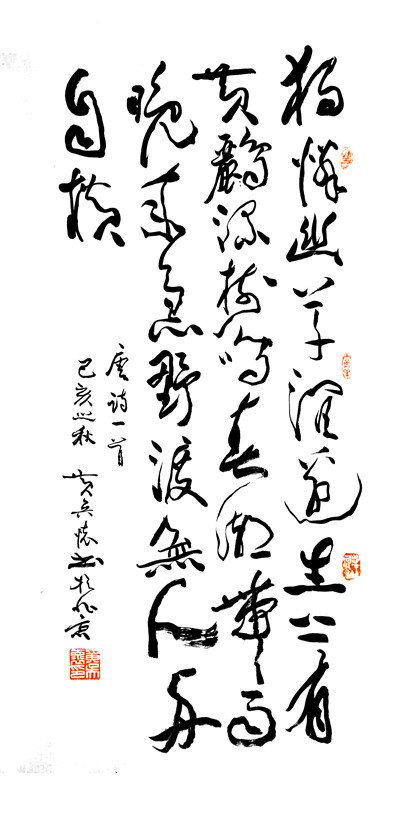 獨憐幽草澗邊生上有
黄鸝深樹鳴春潮帶雨
晚来急野渡無人舟
自横
唐詩一首
己亥之秋
黄兵懷书於北京